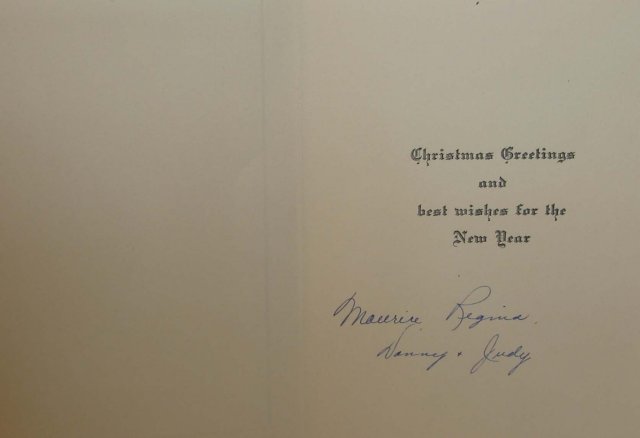 Christmas Greetings
and
best wishes for the
New Year
Maurice Regina.
Danny + Judy